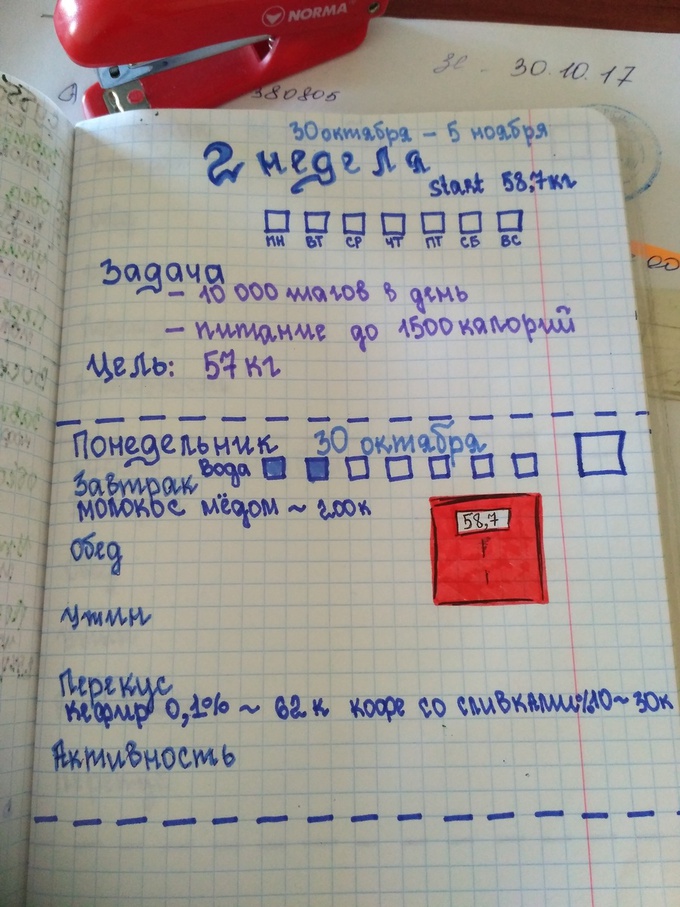 NORMA
зс - 30.10.17
380805
30 октября - 5 ноября
2 неделя
start 58,7 кг
ПН ВТ СР ЧТ ПТ СБ ВС
Задача
- 10 000 шагов в день
- питание до 1500 калорий
Цель: 57 кг
Понедельник 30 октября
вода
Завтрак
молоко с мёдом ~ 200к
58,7
Обед
Ужин
Перекус
кефир 0,1% ~ 62 к кофе со сливками %10 ~ 30к
Активность